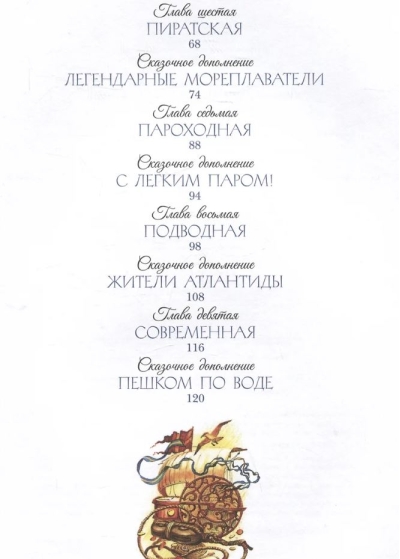 Глава шестая
ПИРАТСКАЯ
68
Сказочное дополнение
ЛЕГЕНДАРНЫЕ МОРЕПЛАВАТЕЛИ
74
Глава седьмая
ПАРОХОДНАЯ
88
Сказочное дополнение
С ЛЕГКИМ ПАРОМ!
94
Глава восьмая
ПОДВОДНАЯ
98
Сказочное дополнение
ЖИТЕЛИ АТЛАНТИДЫ
108
Глава девятая
СОВРЕМЕННАЯ
116
Сказочное дополнение
ПЕШКОМ ПО ВОДЕ
120